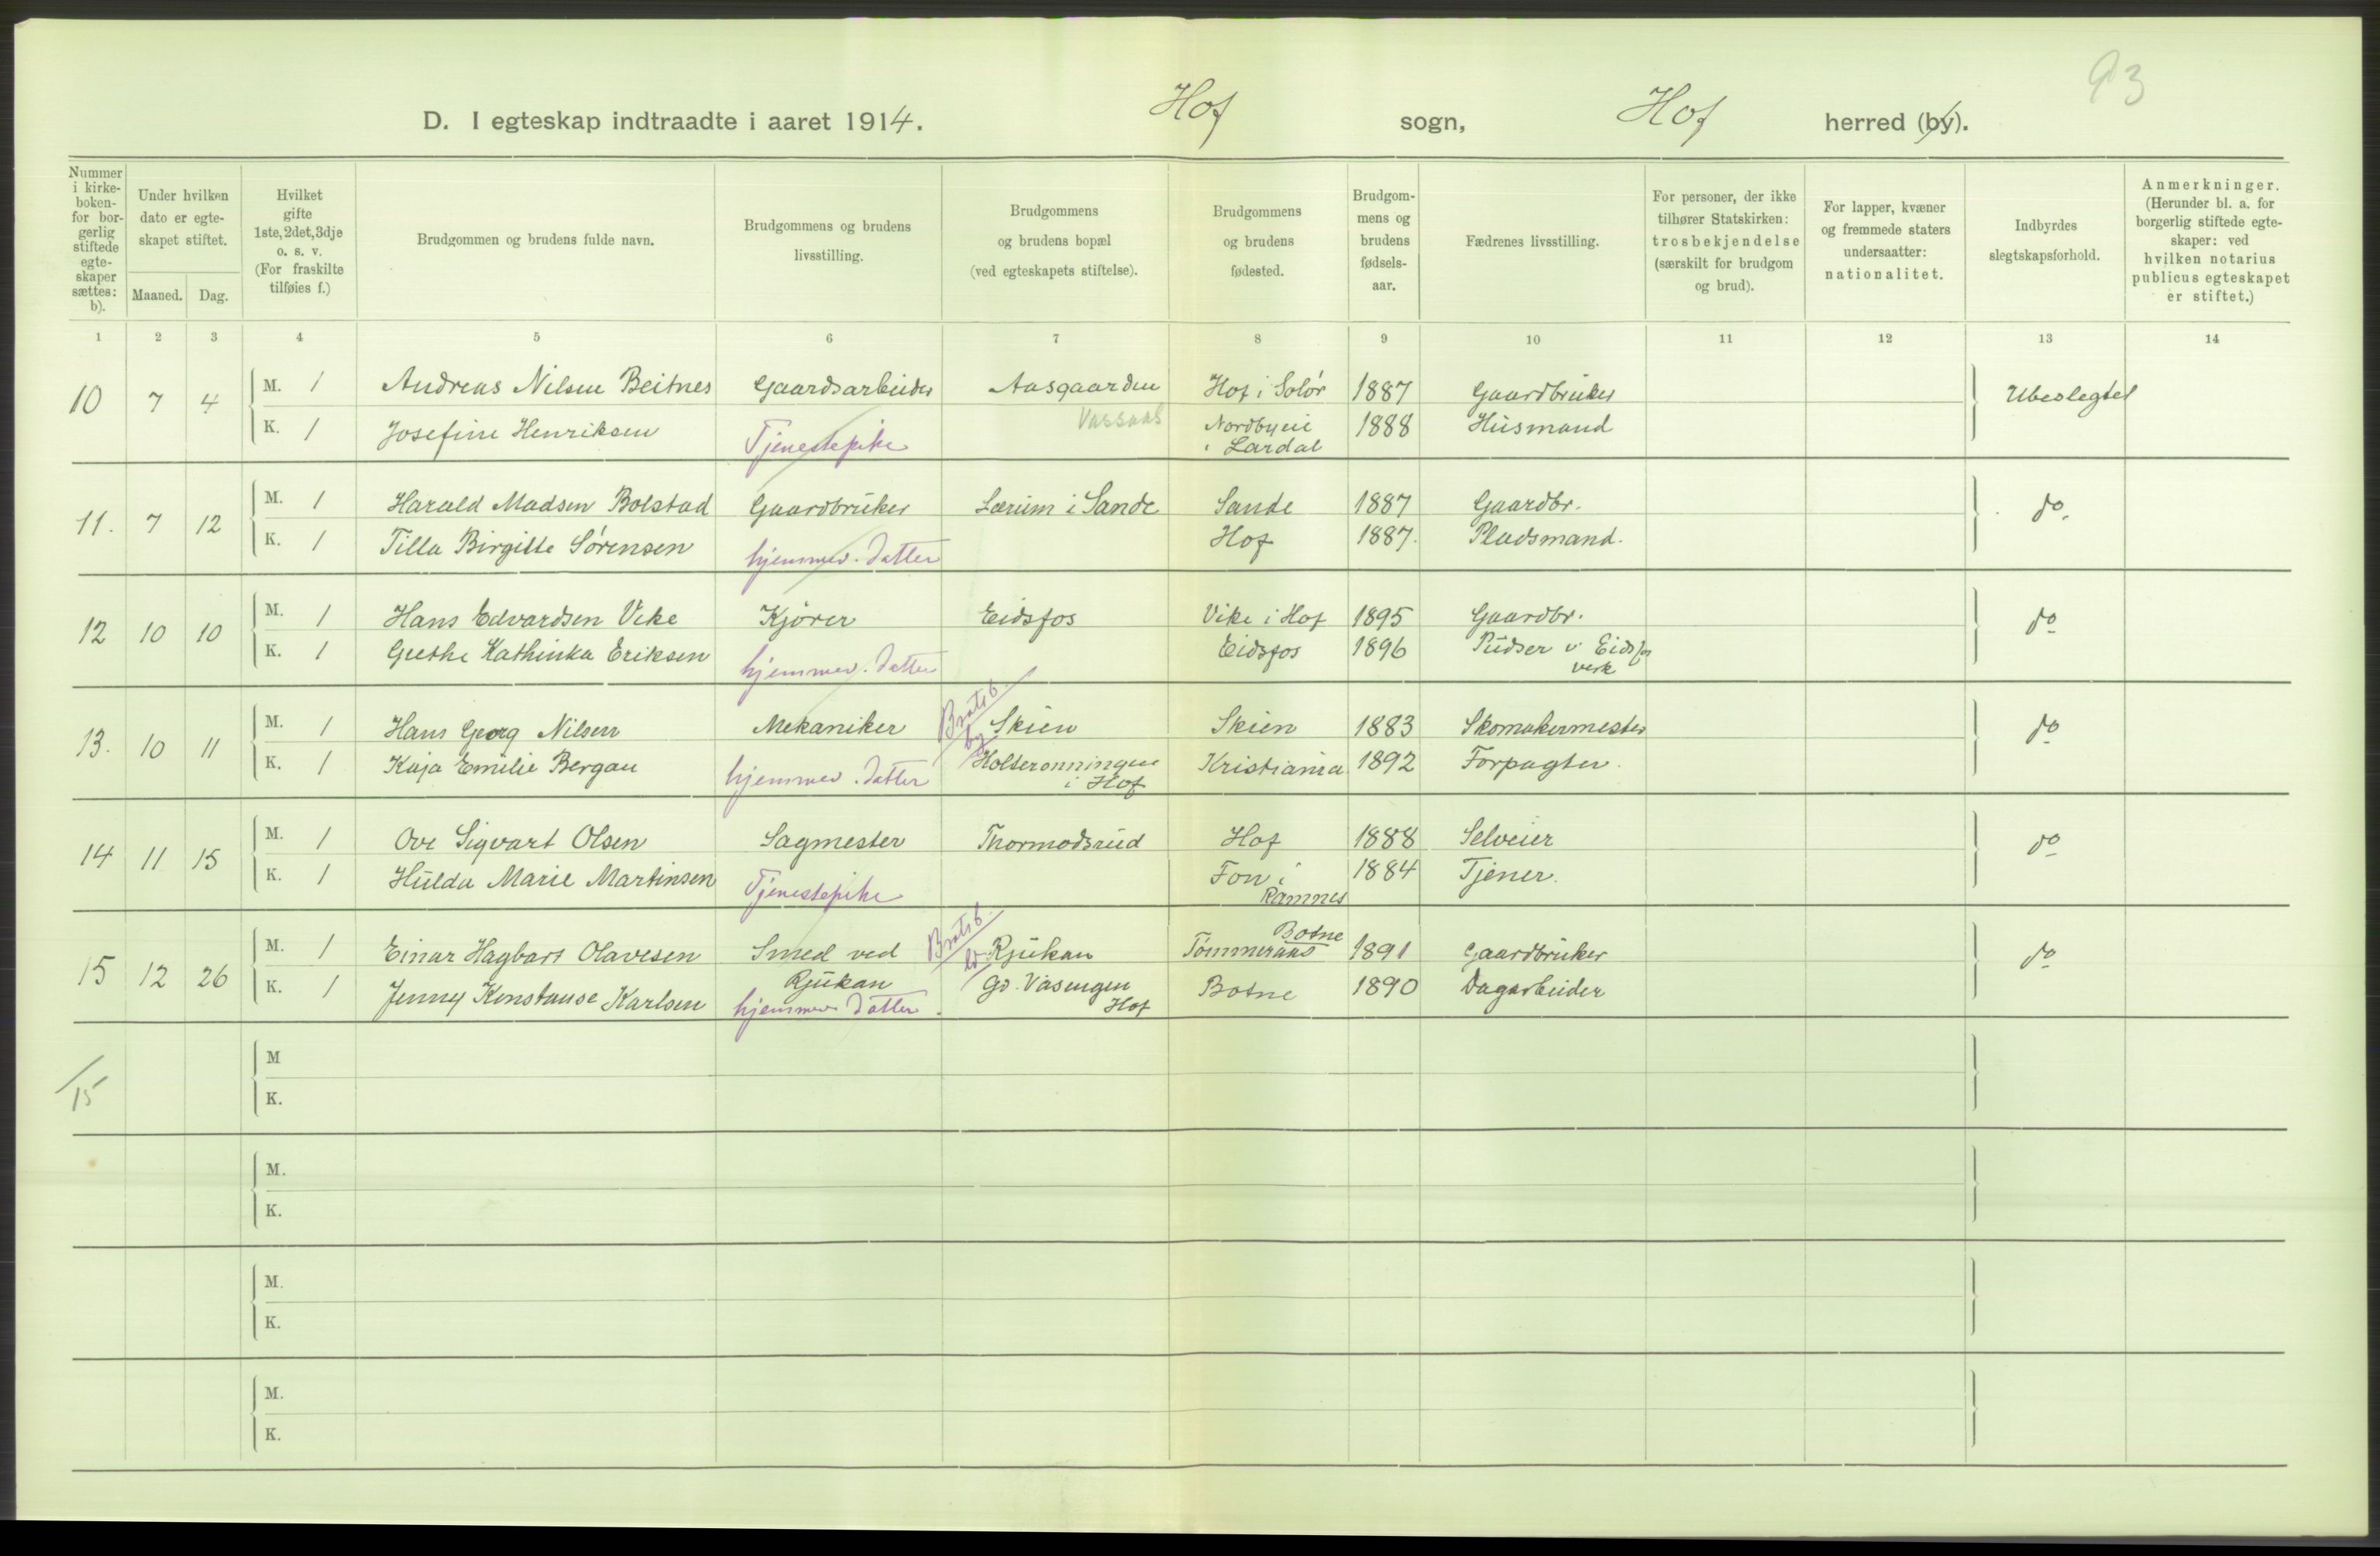 93
D. I egteskap indtraadte i aaret 1914. Hof sogn, Hof herred (by).
Nummer i kirke-boken- for bor-gerlig stiftede egte-skaper sættes: b).
Under hvilken dato er egte-skapet stiftet.
Maaned. Dag.
Hvilket gifte 1ste, 2det, 3dje o. s. v. (For fraskilte tilføies f.)
Brudgommen og brudens fulde navn.
Brudgommens og brudens livsstilling.
Brudgommens og brudens bopæl (ved egteskapets stiftelse).
Brudgommens og brudens fødested.
Brudgom-mens og brudens fødsels-aar.
Fædrenes livsstilling.
For personer, der ikke tilhører Statskirken: trosbekjendelse (særskilt for brudgom og brud).
For lapper, kvæner og fremmede staters undersaatter: nationalitet.
Indbyrdes slegtskapsforhold.
Anmerkninger. (Herunder bl. a. for borgerlig stiftede egte-skaper: ved hvilken notarius publicus egteskapet er stiftet.)
1 2 3 4 5 6 7 8 9 10 11 12 13 14
10 7 4 M. 1 Andreas Nilsen Beitnes Gaardsarbeider Aasgaarden Hof i Solør 1887 Gaardbruker Ubeslegtet
Vassaas
K. 1 Josefine Henriksen Tjenestepike Nordbyeie i Lardal 1888 Husmand
11. 7 12 M. 1 Harald Madsen Bolstad Gaardbruker Lærum i Sande Sande 1887 Gaardbr. do.
K. 1 Tilla Birgitte Sørensen hjemmev. datter Hof 1887. Pladsmand.
12 10 10 M. 1 Hans Edvardsen Vike Kjører Eidsfos Vike i Hof 1895 Gaardbr. do
K. 1 Grethe Kathinka Eriksen hjemmev. datter Eidsfos 1896 Pudser v. Eidsfos verk
13. 10 11 M. 1 Hans Georg Nilsen Mekaniker Bratsb. by Skien Skien 1883 Skomakermester do
K. 1 Kaja Emilie Bergan hjemmev. datter Holteronningen i Hof Kristiania 1892 Forpagter.
14 11 15 M. 1 Ove Sigvart Olsen Sagmester Thormodsrud Hof 1888 Selveier do
K. 1 Hulda Marie Martinsen Tjenestepike Fon i Ramnes 1884 Tjener.
15 12 26 M. 1 Einar Hagbart Olavesen Smed ved Rjukan Bratsb. ld. Rjukan Tømmeraas Botne 1891 Gaardbruker do
K. 1 Jenny Konstanse Karlsen hjemmev. datter. Gd. Väsengen Hof Botne 1890 Dagarbeider
M
15
K.
M.
K.
M.
K.
M.
K.